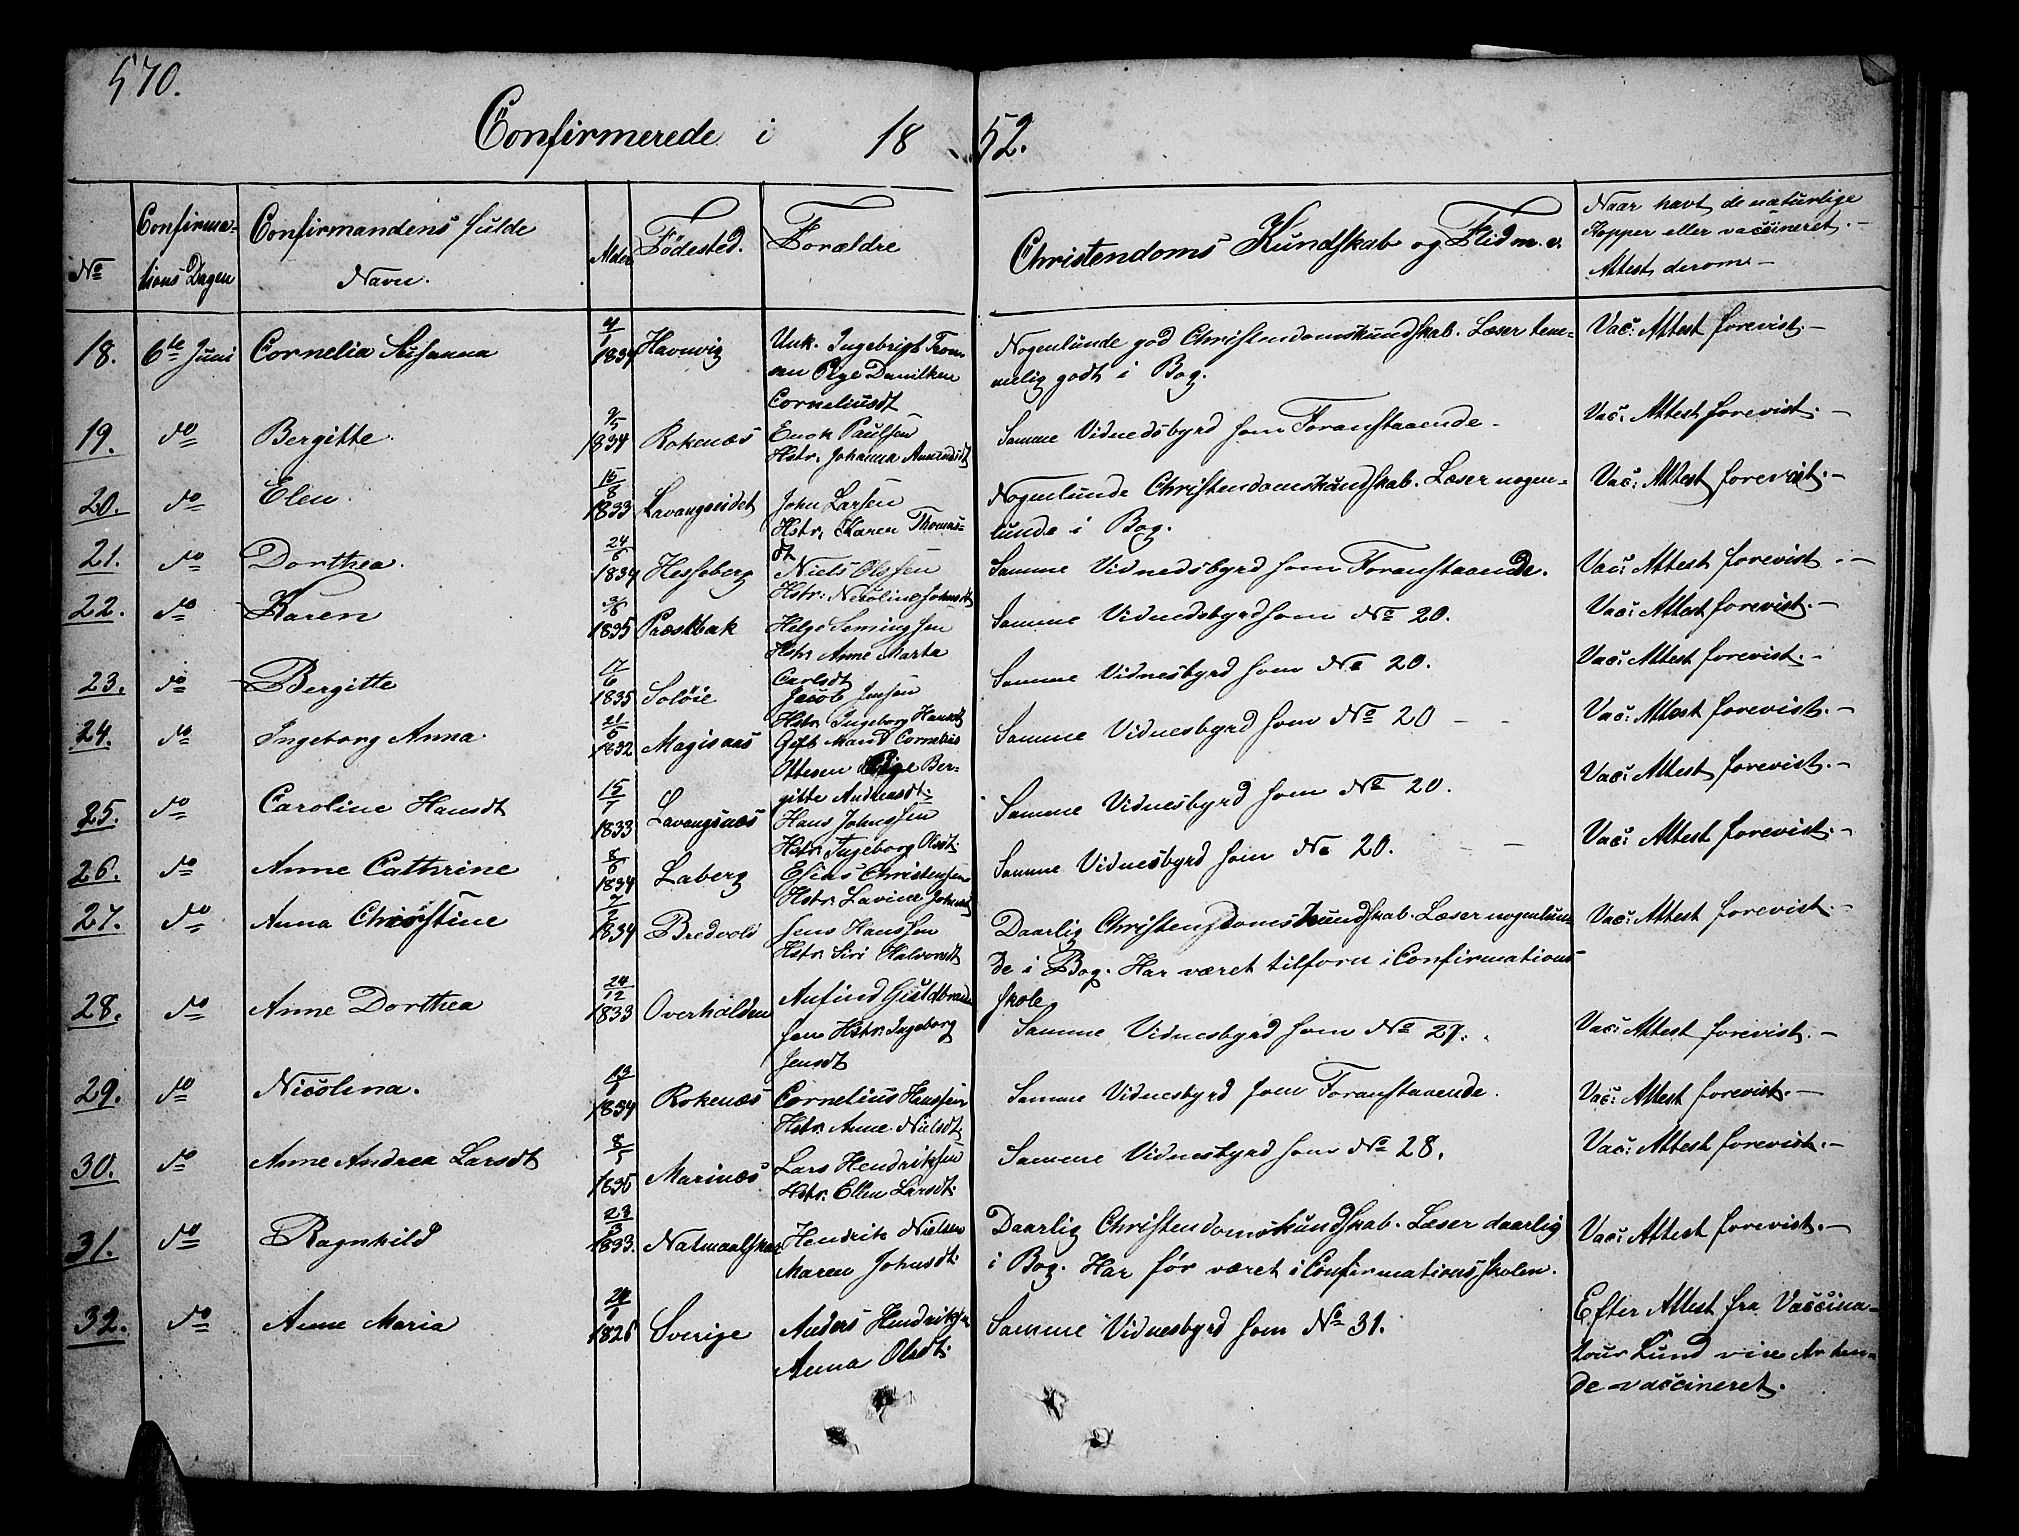 570.
Confirmerede i 1852.
No
Confirma-
tions Dagen
Confirmandens fulde
Navn.
Alder
Fødested.
Forældre
Christendoms Kundskab og Flid m. v.
Naar havt de naturlige
Kopper eller vaccineret.-
Attest derom-
18. 6te Juni Cornelia Susanna 4/1 1834 Havnvig Unk. Ingebrigt Tron
sen Pige Danilken
Corneliusdt
Nogenlunde god Christendomskundskab. Læser tem-
melig godt i Bog.
Vac: Attest forevist.-
19. do Bergitte. 9/5 1834 Rokenæs Enok Paulsen
Hstr. Johanna
Samme Vidnedsbyrd som Foranstaaende.
Vac: Attest forevist.-
20. do Elen. 15/8 1833 Lavangseidet John Larsen
Hstr. Karen Thomas-
dt
Nogenlunde Christendomskundskab. Læser nogen-
lunde i Bog.
Vac: Attest forevist.-
21. do Dorthea. 24/6 1834 Hesseberg Niels Olssen
Hstr. Nicoline Johnsdt
Samme Vidnedsbyrd som Foranstaaende.
Vac: Attest forevist.-
22. do Karen 3/6 1835 Præstbak Helge Semingsen
Hstr. Anne Marta
Carlsdt
Samme Vidnedsbyrd som No 20.
Vac: Attest forevist.-
23. do Bergitte 17/6 1835 Soløie Jacob Jensen
Hstr. Ingeborg Hansdt
Samme Vidnesbyrd som No 20.
Vac: Attest forevist.-
24. do Ingeborg Anna. 21/6 1832 Magisaas Gift Mand Cornelius
Ottesen Pige Ber-
gitte Andreasdt.
Samme Vidnesbyrd som No 20 - -
Vac: Attest forevist.-
25. do Caroline Hansdt 15/7 1833 Lavangsnæs Hans Johnssen
Hstr. Ingeborg Olsdt.
Samme Vidnesbyrd som No 20.
Vac: Attest forevist.-
26. do Anne Cathrine 8/6 1834 Laberg Elias Christensen
Hstr. Lavine Johnsdt
Samme Vidnesbyrd som No 20. - -
Vac: Attest forevist.-
27. do Anna Christine 1834 Bredvold Jens Hanssen
Hstr. Siri Halvorsdt
Daarlig Christendomskundskab. Læser nogenlun-
de i Bog. Har været tilforn i Confirmations-
skole
Vac: Attest forevist.-
28. do Anne Dorthea 24/12 1833 Overhalden Anfind Guldbrand
sen Hstr. Ingeborg
Jensdt
Samme Vidnesbyrd som No 27.
Vac: Attest forevist.-
29. do Nicolina. 1834 Rokenæs Cornelius Hanssen
Hstr. Anne Nielsdt.
Samme Vidnesbyrd som Foranstaaende.
Vac: Attest forevist.-
30. do Anne Andrea Larsdt 8/5 1835 Marinæs Lars Hendriksen
Hstr. Ellen Larsdt.
Samme Vidnesbyrd som No 28.
Vac: Attest forevist.-
31. do Ragnhild 23/3 1833. Natmaalskar Hendrik Nielsen
Maren Johnsdt.
Daarlig Christendomskundskab. Læser daarlig
i Bog. Har før været i Confirmationsskolen.
Vac: Attest forevist.-
32. do Anne Maria 1826 Sverige Anders Hendriksen
Anna Olsdt.
Samme Vidnesbyrd som No 31.
Efter Attest fra Vaccina-
teur Lund
de vaccineret.